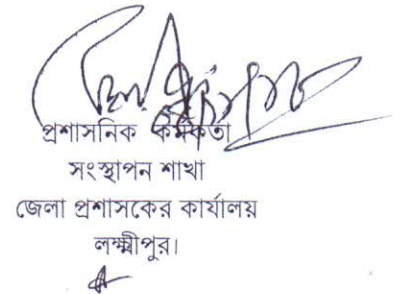 প্রশাসনিক কর্মকর্তা
সংস্থাপন শাখা
জেলা প্রশাসকের কার্যালয়
লক্ষ্মীপুর।